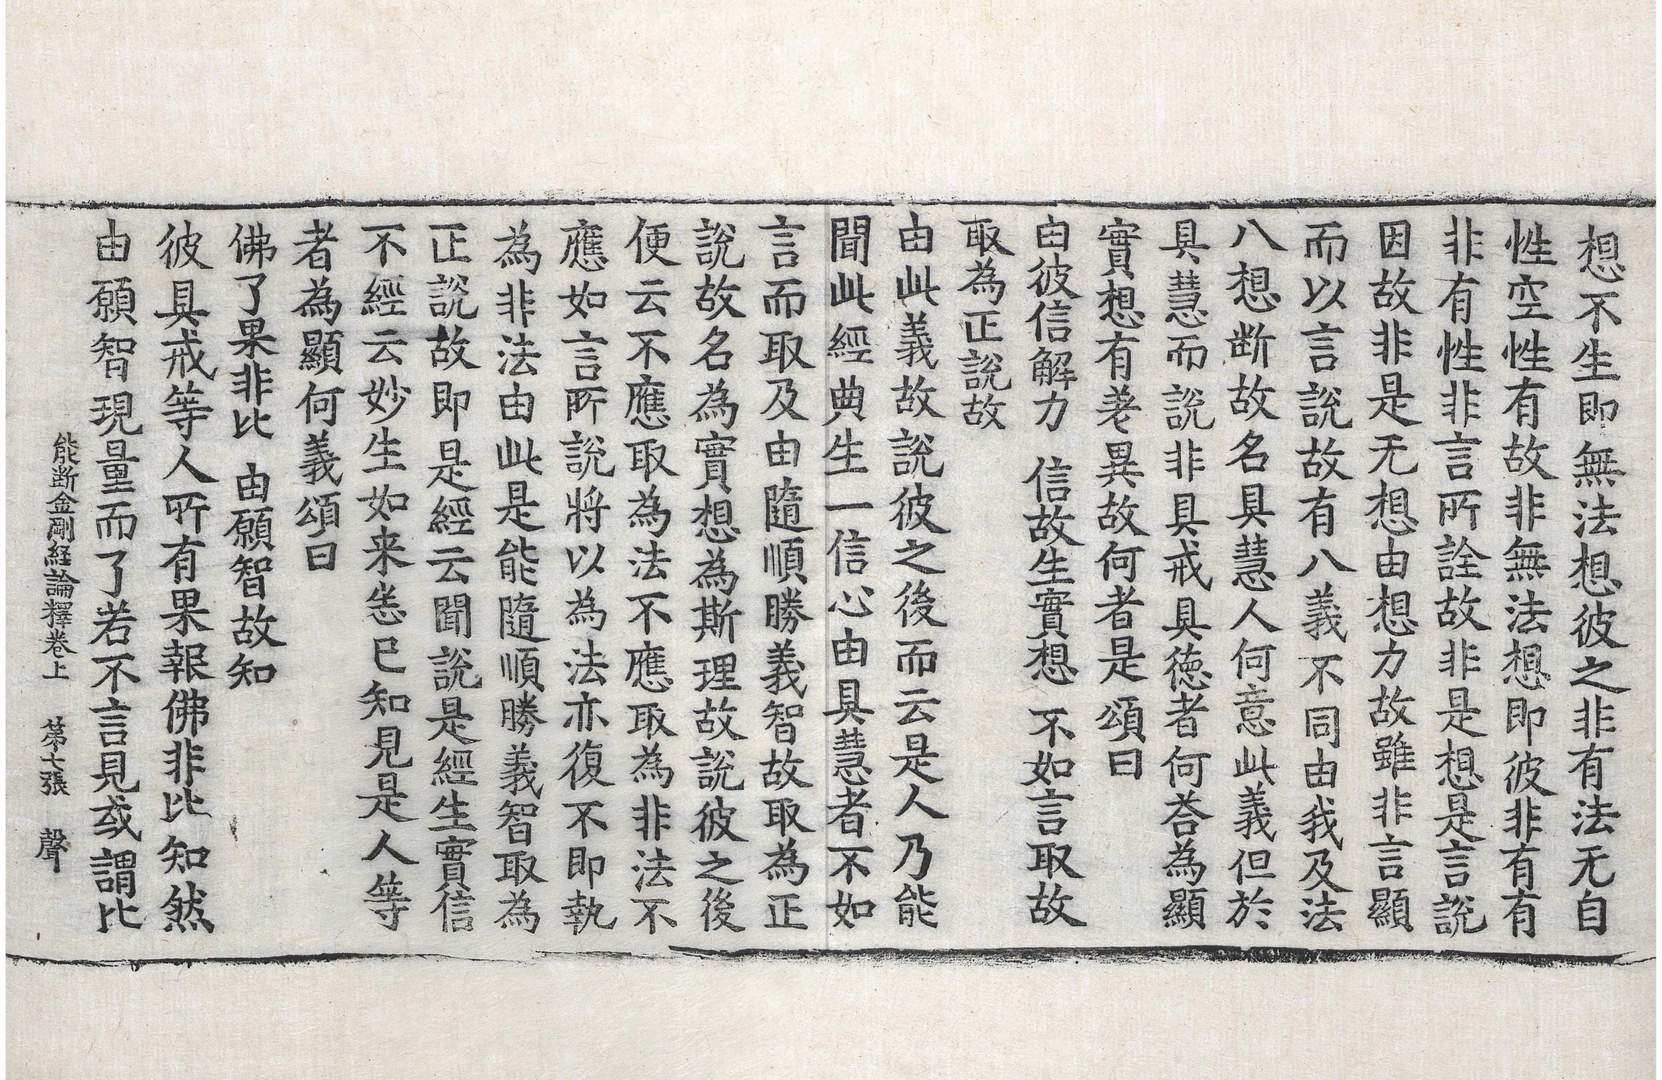 想不生即無法想彼之非有法无自
性空性有故非無法想即彼非有有
非有性非言所詮故非是想是言說
因故非是无想由想力故雖非言顯
而以言說故有八義不同由我及法
八想断故名具慧人何意此義但於
具慧而說非具戒具徳者何荅為顯
實想有差異故何者是頌曰
由彼信解力 信故生實想 不如言取故
取為正說故
由此義故說彼之後而云是人乃能
聞此經典生一信心由具慧者不如
言而取及由隨順勝義智故取為正
說故名為實想為斯理故說彼之後
便云不應取為法不應取為非法不
應如言所說將以為法亦復不即執
為非法由此是能隨順勝義智取為
正說故即是經云聞說是經生實信
不經云妙生如来悉已知見是人等
者為顯何義頌曰
佛了果非比 由願智故知
彼具戒等人所有果報佛非比知然
由願智現量而了若不言見或謂比
能断金剛経論釋卷上 第七張 聲